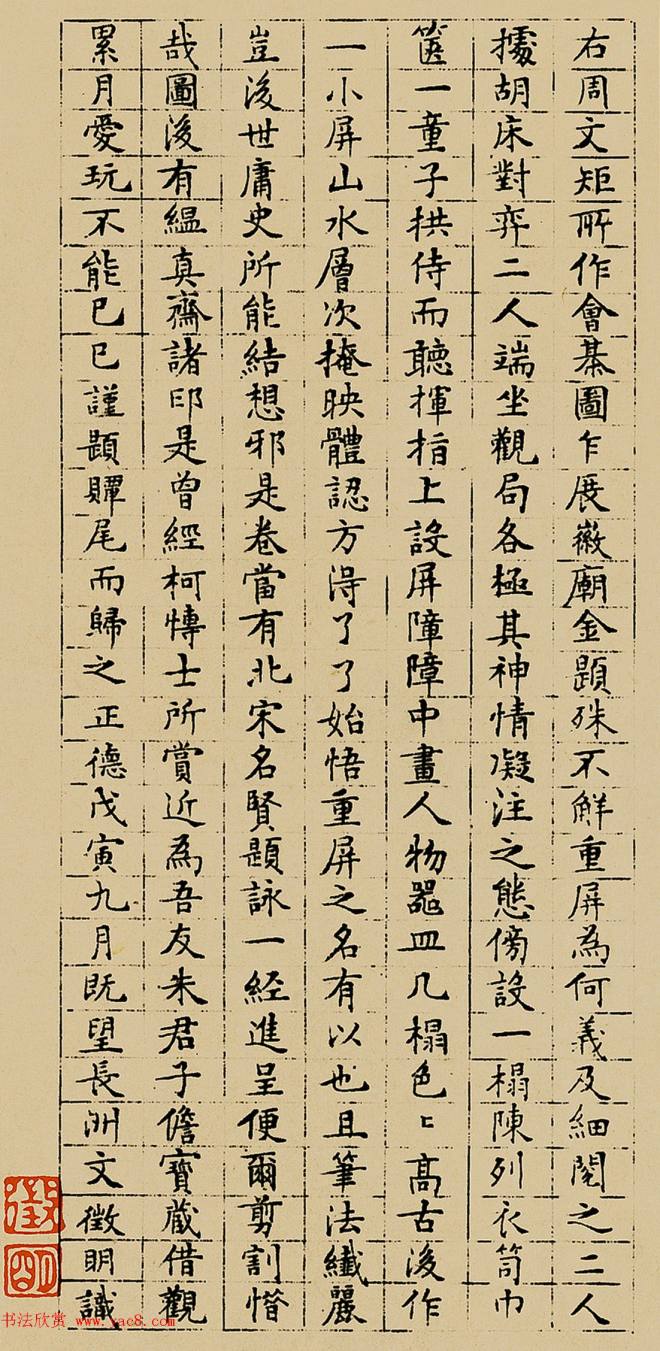 右周文矩所作會棊圖乍展徽廟金題殊不解重屏為何義及細閱之二人
據胡床對弈二人端坐觀局各極其神情凝注之態傍設一榻陳列衣笥巾
篋一童子拱侍而聽揮指上設屏障障中畫人物器皿几榻色〻高古後作
一小屏山水層次掩映體認方得了了始悟重屏之名有以也且筆法纖麗
豈後世庸史所能結想邪是卷當有北宋名賢題詠一經進呈便爾剪割惜
哉圖後有緼真齋諸印是曾經柯博士所賞近為吾友朱君子儋寶藏借觀
累月愛玩不能已已謹題贉尾而歸之正德戊寅九月既望長洲文徵明識
徵
明
书法欣赏 www.yac8.com